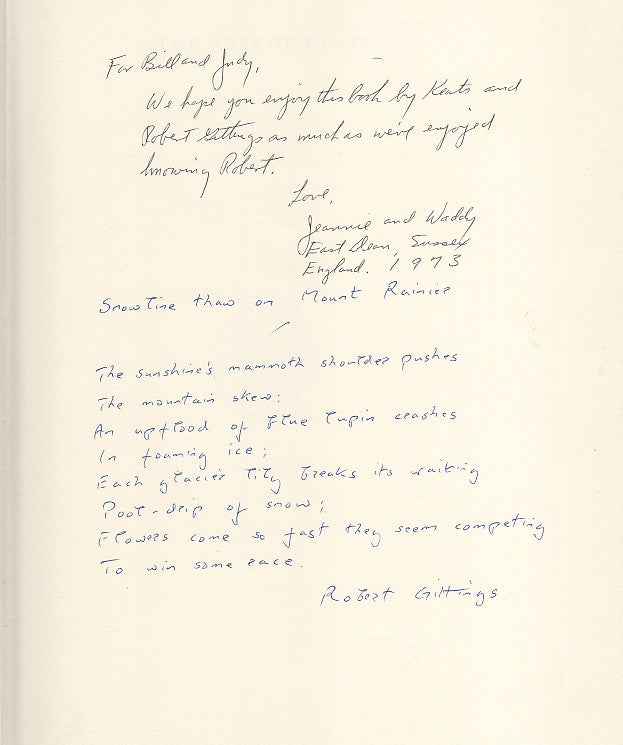 For Bill and Judy,
We hope you enjoy this book by Keats and
Robert Gittings as much as we've enjoyed
knowing Robert.
Love,
Jeannie and Waddy
East Dean, Sussex
England. 1973
Snowline thaw on Mount Rainier
The sunshine's mammoth shoulder pushes
The mountain skew:
An upflood of blue lupin crashes
In foaming ice;
Each glacier lily breaks its waiting
Pool-drip of snow;
Flowers come so fast they seem competing
To win some race.
Robert Gittings